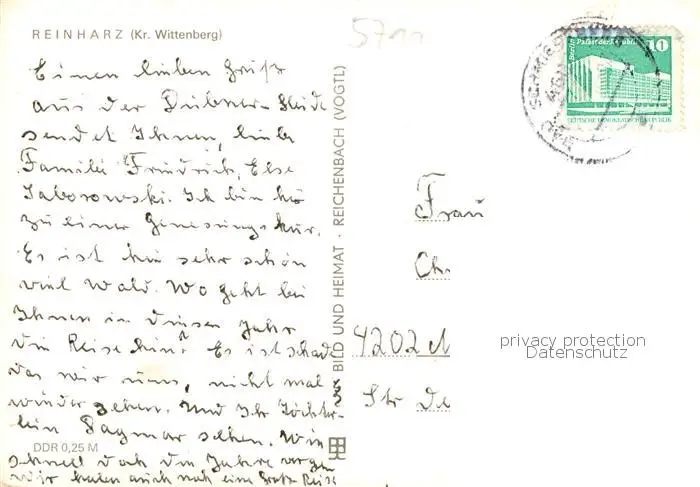 REINHARZ (Kr. Wittenberg)
Einen lieben Gruß
aus der Dübner-Heide
sendet Ihnen, liebe
Familie Friedrich, Else
Saborowski. Ich bin hir
zu einer Genesungskur.
Es ist hir sehr schön
viel Wald. Wo geht bei
Ihnen in diesen Jahr
die Reise hin? Es ist schade
das wir uns, nicht mal
wieder sehen. Und Ihr Töchter-
lein Dagmar sehen. Wie
schnell doch die Jahre vergen
wir haben auch noch eine Große Reise
DDR 0,25 M
BILD UND HEIMAT · REICHENBACH (VOGTL)
571
Berlin, Palast der Republik
10
DEUTSCHE DEMOKRATISCHE REPUBLIK
BAD SCHMIEDEBERG
Frau
Ch
4202
Str De
privacy protection
Datenschutz